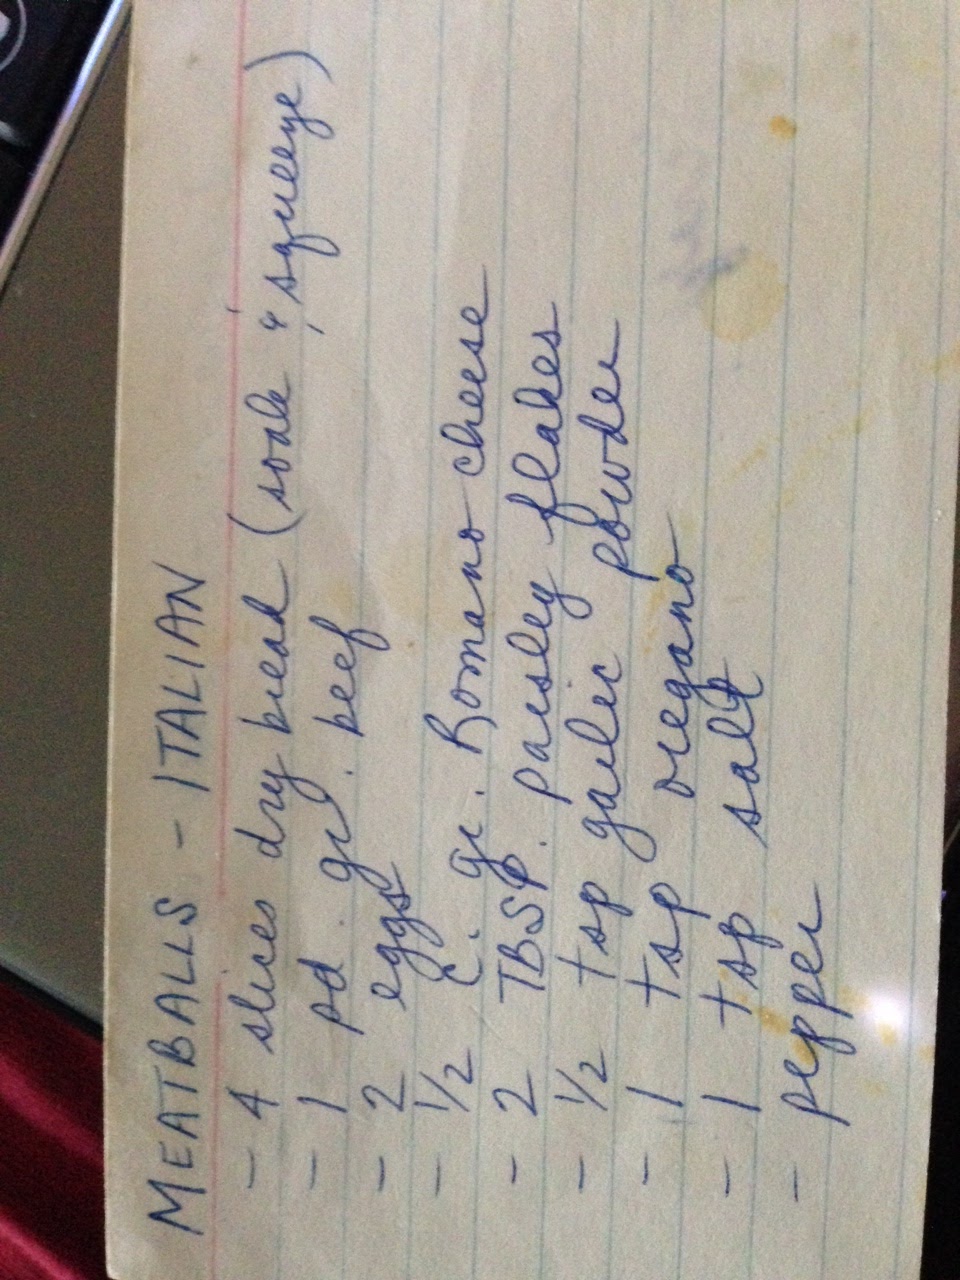 MEATBALLS - ITALIAN
- 4 slices dry bread (soak & squeeze)
- 1 pd. gr. beef
- 2 eggs
- 1/2 c. gr. Romano cheese
- 2 TBSP. parsley flakes
- 1/2 tsp garlic powder
- 1 tsp oregano
- 1 tsp salt
- pepper